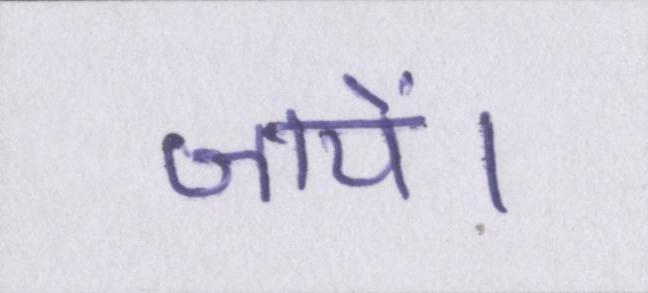 जायें।